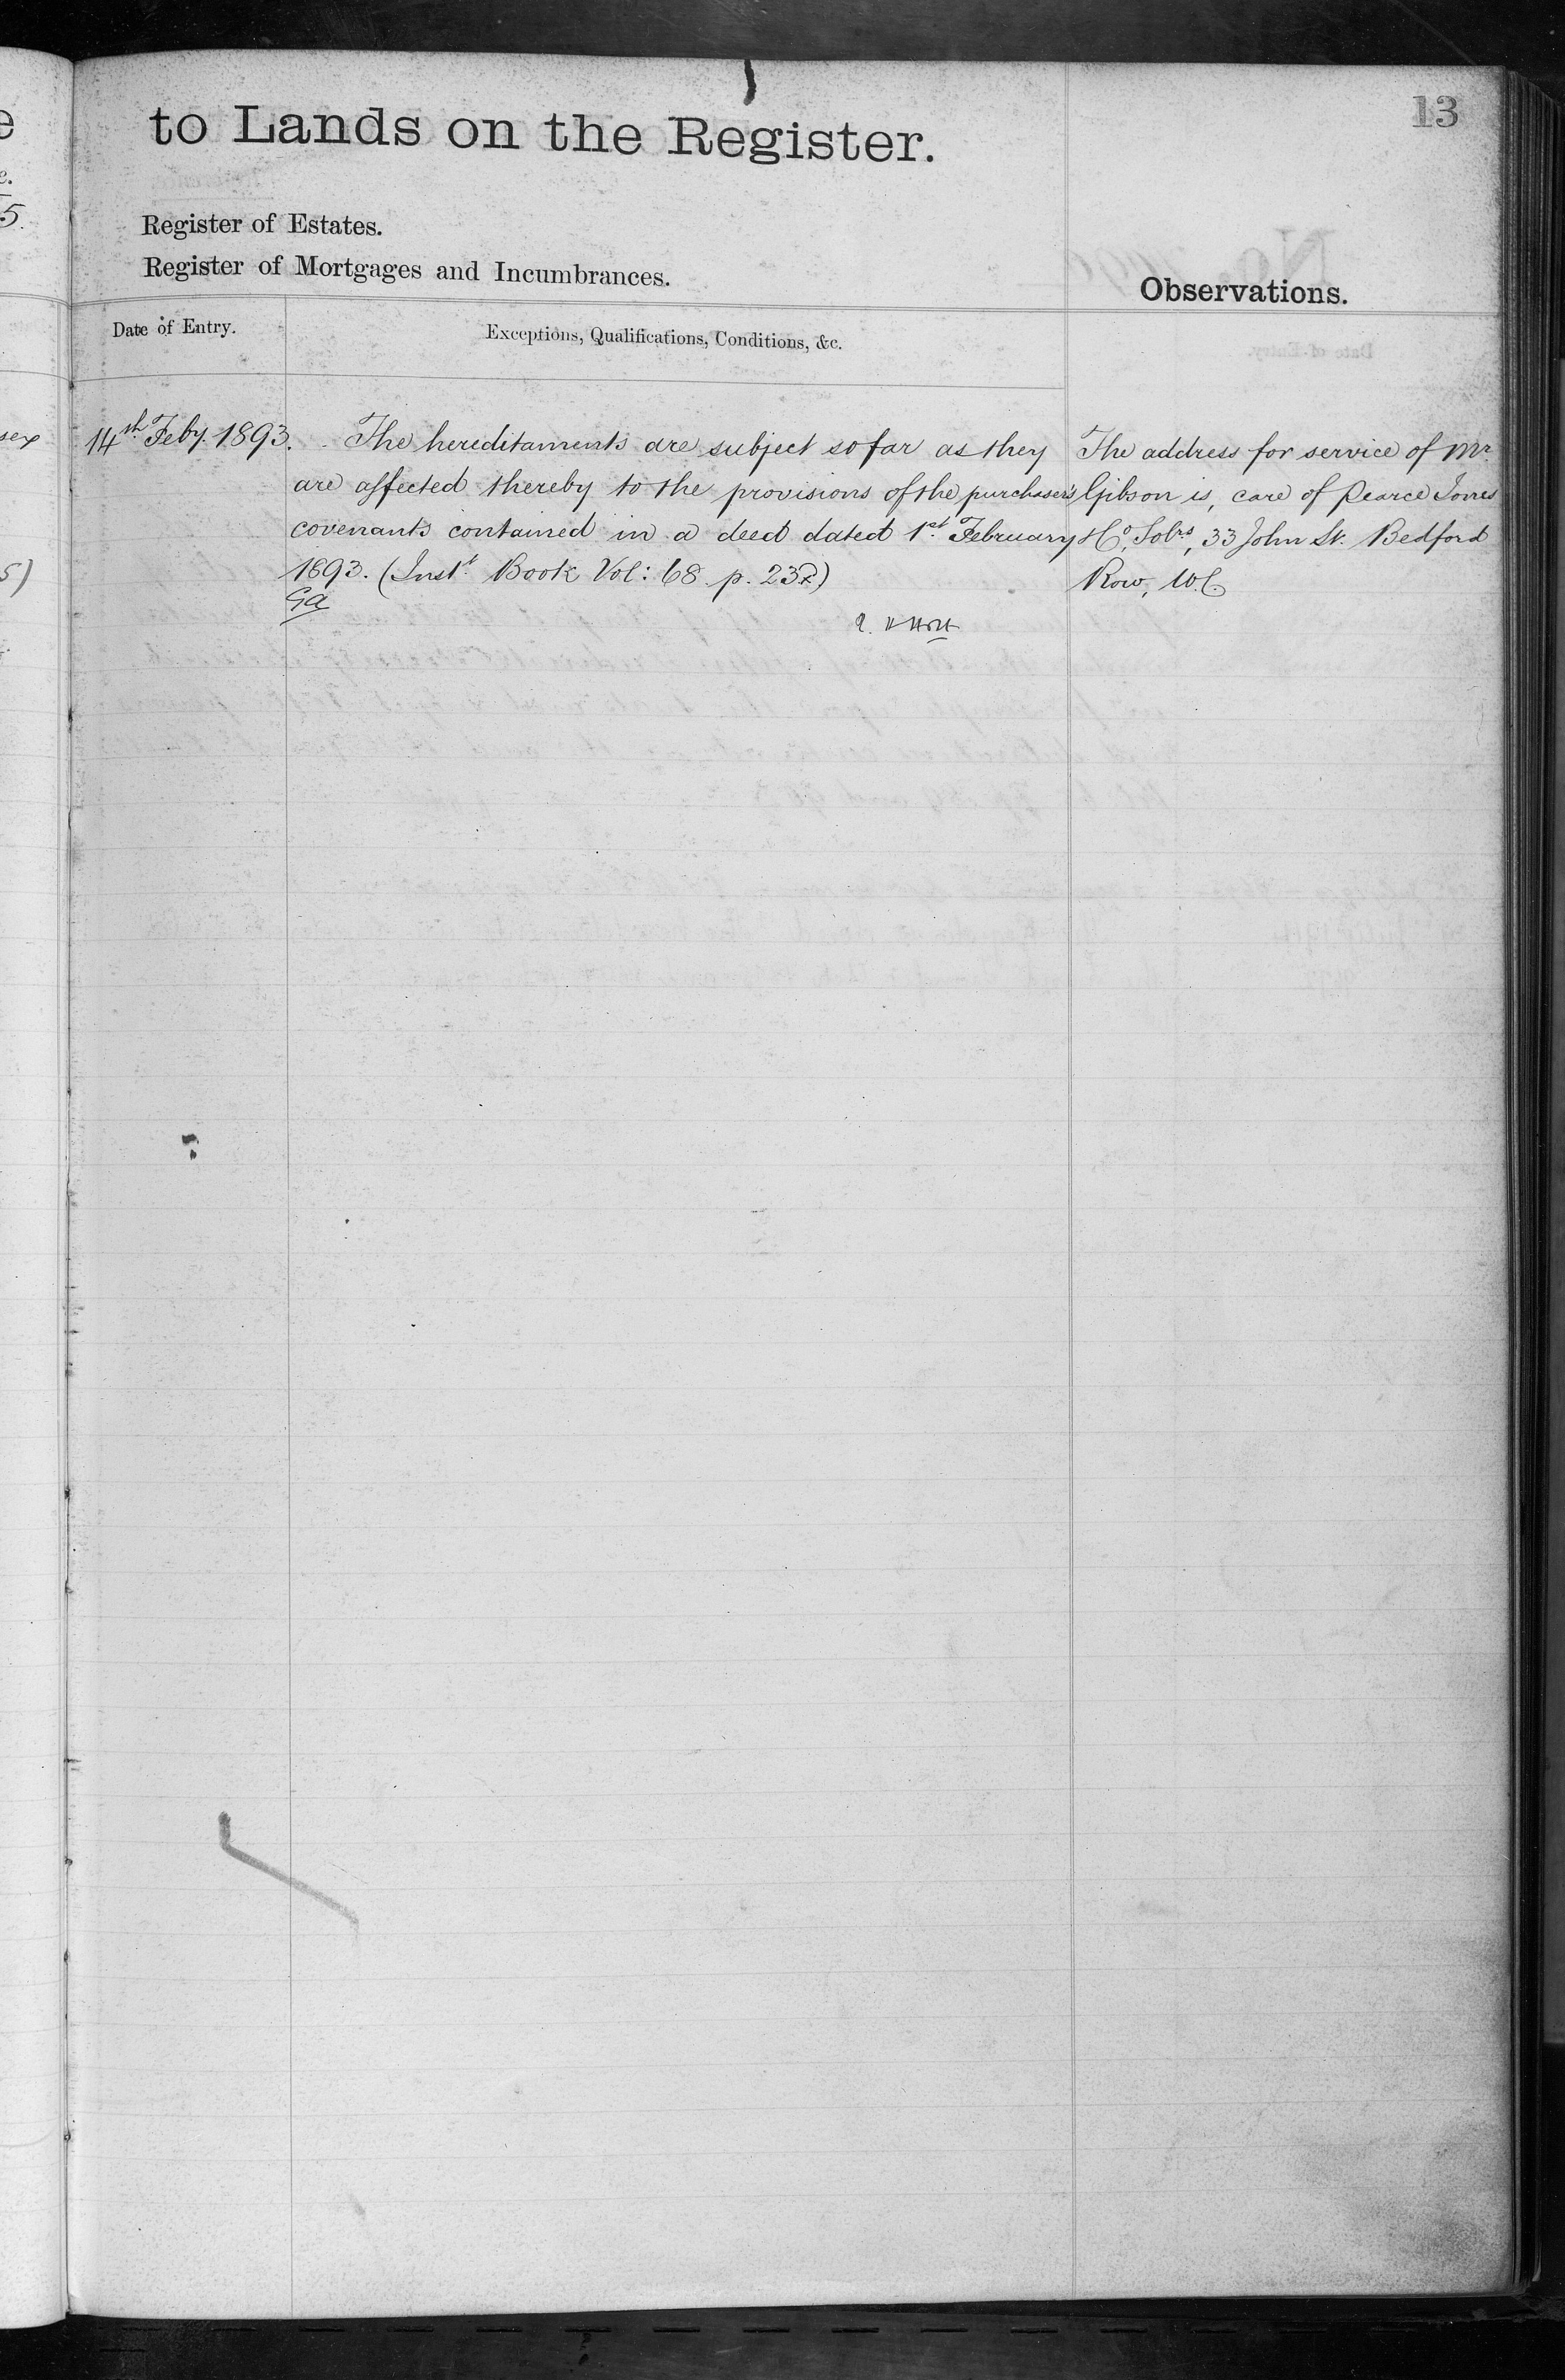 13
to Lands on the Register.
Register of Estates.
Register of Mortgages and Incumbrances.
Observations.
Date of Entry.
Exceptions, Qualifications, Conditions, &c.
14th Feby. 1893.
The hereditaments are subject so far as they
are affected thereby to the provisions of the purchaser's
covenants contained in a deed dated 1st February
1893. (Inst. Book Vol: 68 p. 232)
Ga
The address for service of Mr.
Gibson is, care of Pearce Jones
& Co, Solrs, 33 John St. Bedford
Row, W.C.